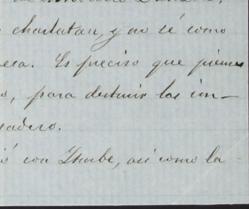 charlatan, y no sé como
esa. Es preciso que pienses
o, para destruir las im-
sadero.
ó con Thorbe, así como la